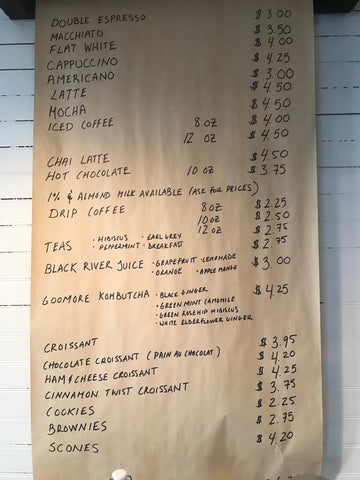 DOUBLE ESPRESSO $ 3.00
MACCHIATO $ 3.50
FLAT WHITE $ 4.00
CAPPUCCINO $ 4.25
AMERICANO $ 3.00
LATTE $ 4.50
MOCHA $ 4.50
ICED COFFEE 8 OZ $ 4.00
12 OZ $ 4.50
CHAI LATTE $ 4.50
HOT CHOCOLATE 10 OZ $ 3.75
1% & ALMOND MILK AVAILABLE (ASK FOR PRICES)
DRIP COFFEE 8 OZ $ 2.25
10 OZ $ 2.50
12 OZ $ 2.75
TEAS • HIBISCUS • EARL GREY $ 2.75
• PEPPERMINT • BREAKFAST
BLACK RIVER JUICE • GRAPEFRUIT • LEMONADE $ 3.00
• ORANGE • APPLE MANGO
GOOMORE KOMBUTCHA • BLACK GINGER $ 4.25
• GREEN MINT CAMOMILE
• GREEN ROSEHIP HIBISCUS
• WHITE ELDERFLOWER GINGER
CROISSANT $ 3.95
CHOCOLATE CROISSANT (PAIN AU CHOCOLAT) $ 4.20
HAM & CHEESE CROISSANT $ 4.25
CINNAMON TWIST CROISSANT $ 3.75
COOKIES $ 2.25
BROWNIES $ 2.75
SCONES $ 4.20